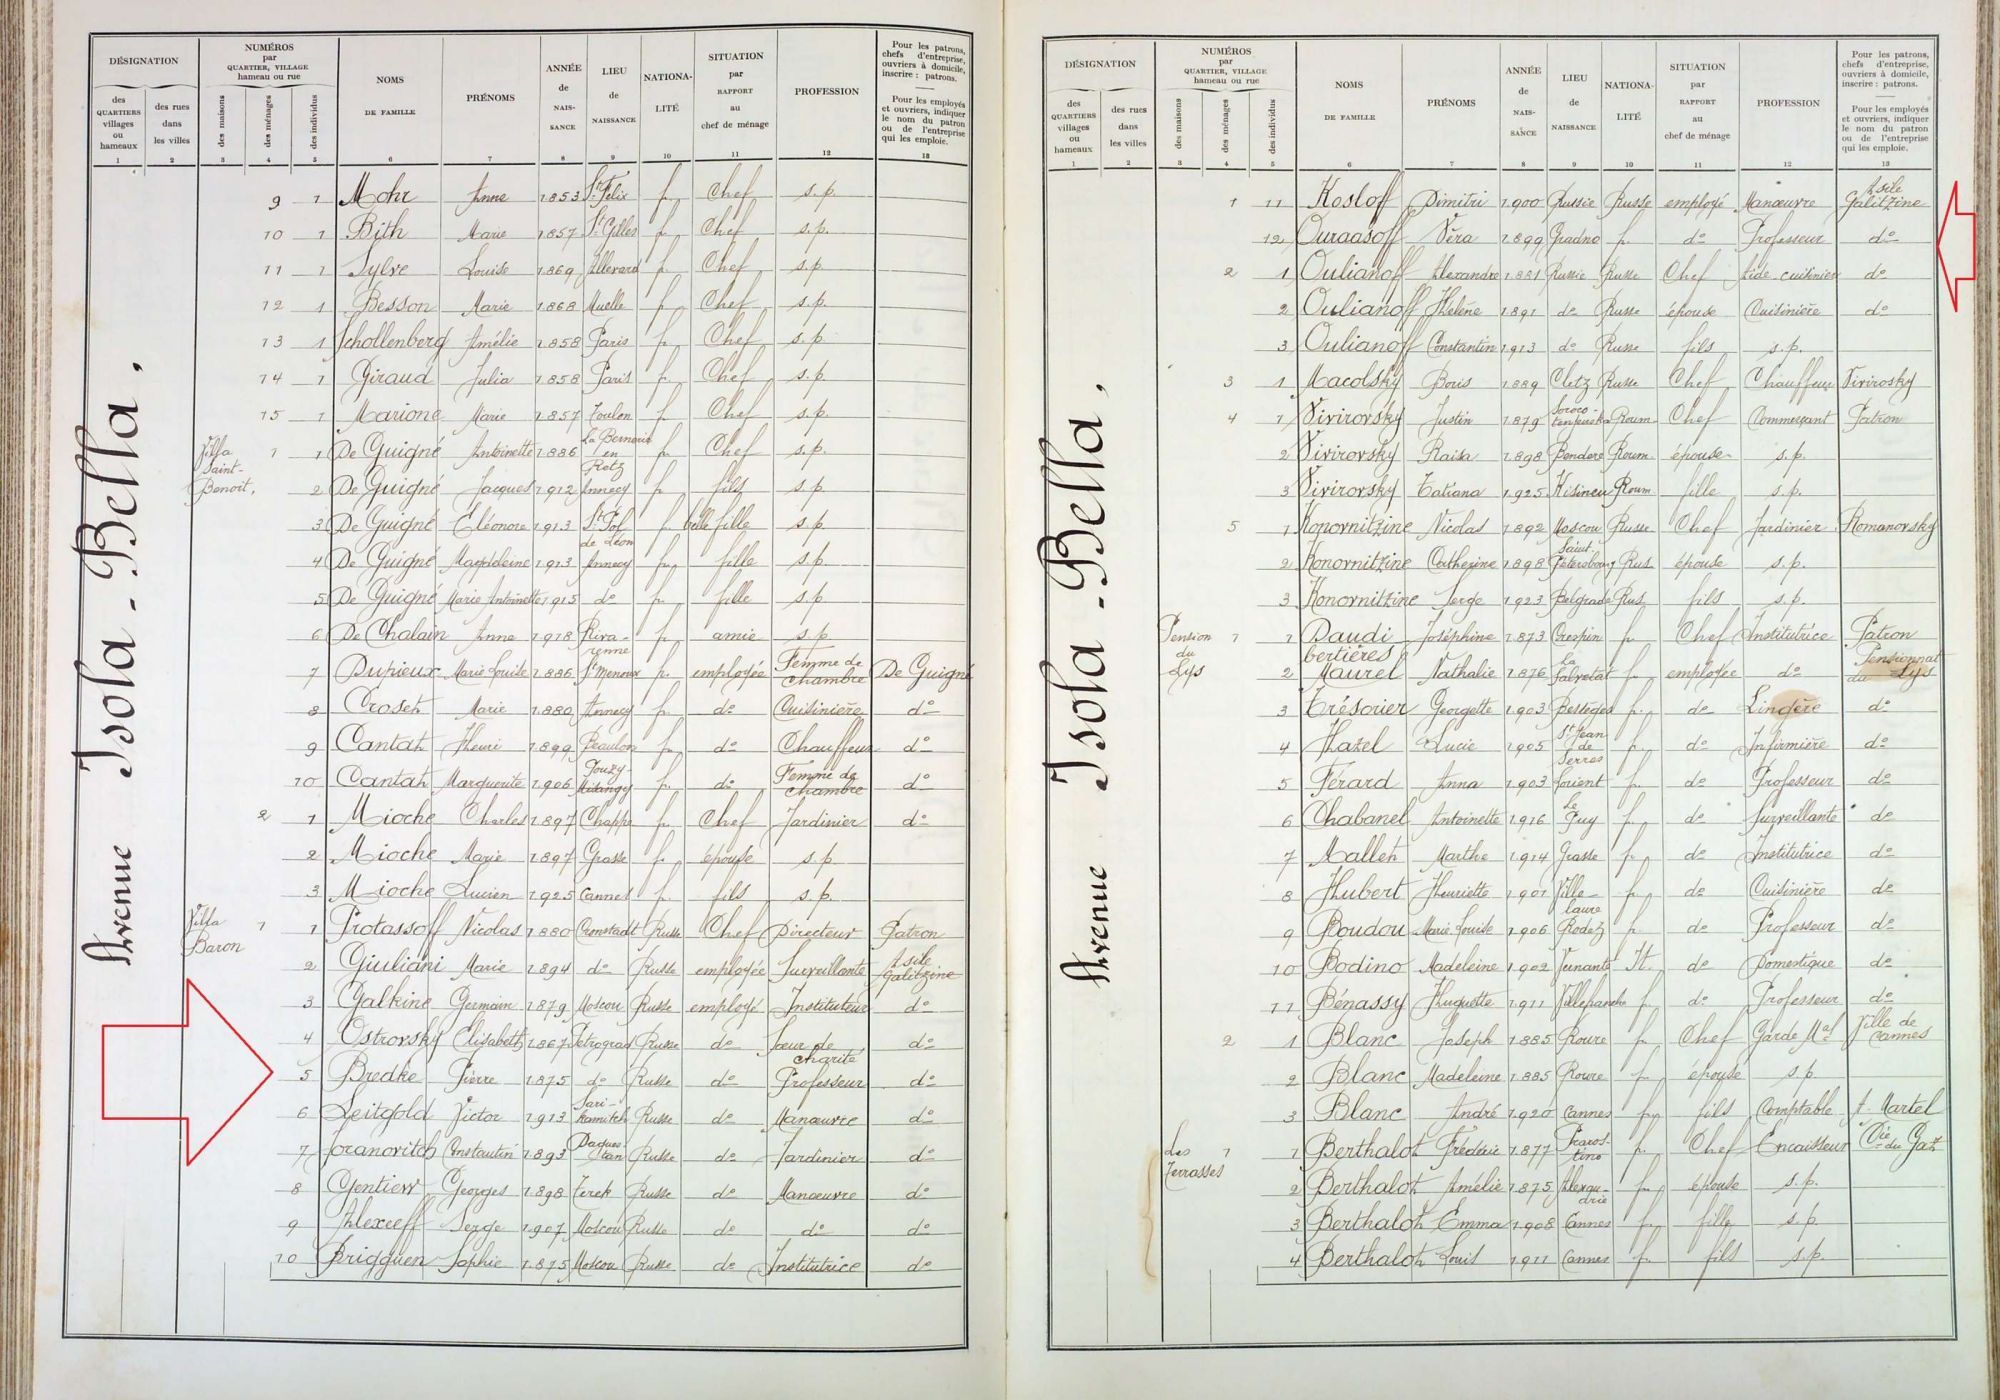 DÉSIGNATION
des QUARTIERS villages ou hameaux
des rues dans les villes
NUMÉROS par QUARTIER, VILLAGE hameau ou rue
des maisons
des ménages
des individus
NOMS DE FAMILLE
PRÉNOMS
ANNÉE de NAIS-SANCE
LIEU de NAISSANCE
NATIONA-LITÉ
SITUATION par RAPPORT au chef de ménage
PROFESSION
Pour les patrons, chefs d'entreprise, ouvriers à domicile, inscrire : patrons.
Pour les employés et ouvriers, indiquer le nom du patron ou de l'entreprise qui les emploie.
1 2 3 4 5 6 7 8 9 10 11 12 13
Avenue Isola-Bella,
9 1 Mohr Anne 1853 St Félix f. Chef s.p.
10 1 Bith Marie 1857 St Gilles f. Chef s.p.
11 1 Sylve Louise 1869 Allevard f. Chef s.p.
12 1 Besson Marie 1868 Muelle f. Chef s.p.
13 1 Schollenberg Amélie 1858 Paris f. Chef s.p.
14 1 Giraud Julia 1858 Paris f. Chef s.p.
15 1 Marione Marie 1857 Toulon f. Chef s.p.
Villa Saint-Benoit, 1 1 De Guigné Antoinette 1886 La Bernerie en Retz f. Chef s.p.
2 De Guigné Jacques 1912 Annecy f. fils s.p.
3 De Guigné Eléonore 1913 St Pol de Léon f. belle fille s.p.
4 De Guigné Magdeleine 1913 Annecy f. fille s.p.
5 De Guigné Marie Antoinette 1915 do f. fille s.p.
6 De Chalain Anne 1918 Rivarenne f. amie s.p.
7 Dupieux Marie Louise 1886 St Menoux f. employée Femme de chambre De Guigné
8 Croset Marie 1880 Annecy f. do Cuisinière do
9 Cantat Henri 1899 Beaulon f. do Chauffeur do
10 Cantat Marguerite 1906 f. do Femme de chambre do
2 1 Mioche Charles 1897 Chappe f. Chef Jardinier do
2 Mioche Marie 1897 Grasse f. épouse s.p.
3 Mioche Lucien 1925 Cannes f. fils s.p.
Villa Baron 1 1 Protassoff Nicolas 1880 Cronstadt Russe Chef Directeur Patron
2 Giuliani Marie 1894 do Russe employée Surveillante Asile Galitzine
3 Galkine Germain 1879 Moscou Russe employé Instituteur do
4 Ostrovsky Elisabeth 1867 Petrograd Russe do Sœur de charité do
5 Bredke Pierre 1875 do Russe do Professeur do
6 Leitgold Victor 1913 Sari-Kamitch Russe do Manœuvre do
7 Joranovitch Constantin 1893 Daguestan Russe do Jardinier do
8 Gentiew Georges 1898 Terek Russe do Manœuvre do
9 Alexeeff Serge 1907 Moscou Russe do do do
10 Brigguen Sophie 1875 Moscou Russe do Institutrice do
DÉSIGNATION
des QUARTIERS villages ou hameaux
des rues dans les villes
NUMÉROS par QUARTIER, VILLAGE hameau ou rue
des maisons
des ménages
des individus
NOMS DE FAMILLE
PRÉNOMS
ANNÉE de NAIS-SANCE
LIEU de NAISSANCE
NATIONA-LITÉ
SITUATION par RAPPORT au chef de ménage
PROFESSION
Pour les patrons, chefs d'entreprise, ouvriers à domicile, inscrire : patrons.
Pour les employés et ouvriers, indiquer le nom du patron ou de l'entreprise qui les emploie.
1 2 3 4 5 6 7 8 9 10 11 12 13
Avenue Isola-Bella,
1 11 Kosloff Dimitri 1900 Russie Russe employé Manœuvre Asile Galitzine
12 Ouraasoff Véra 1899 Gradno f. do Professeur do
2 1 Oulianoff Alexandre 1881 Russie Russe Chef Aide-cuisinier do
2 Oulianoff Hélène 1891 do Russe épouse Cuisinière do
3 Oulianoff Constantin 1913 do Russe fils s.p.
3 1 Macolsky Boris 1889 Cletz Russe Chef Chauffeur Vivirosky
4 1 Vivirovsky Justin 1879 Roum. Chef Commerçant Patron
2 Vivirovsky Raisa 1898 Bendere Roum. épouse s.p.
3 Vivirovsky Tatiana 1925 Kisineu Roum fille s.p.
5 1 Konornitzine Nicolas 1892 Moscou Russe Chef Jardinier Romanovsky
2 Konornitzine Catherine 1898 Saint-Petersbourg Rus. épouse s.p.
3 Konornitzine Serge 1923 Belgrade Rus. fils s.p.
Pension du Lys 1 1 Daudi bertières Joséphine 1873 Crespin f. Chef Institutrice Patron
2 Maurel Nathalie 1876 La Salvetat f. employée do Pensionnat du Lys
3 Trésorier Georgette 1903 Bessèges f. do Lingère do
4 Hazel Lucie 1905 St Jean de Serres f. do Infirmière do
5 Férard Anna 1903 Lorient f. do Professeur do
6 Chabanel Antoinette 1916 Le Puy f. do Surveillante do
7 Mallet Marthe 1914 Grasse f. do Institutrice do
8 Hubert Henriette 1901 Ville-laure f. do Cuisinière do
9 Boudou Marie Louise 1906 Rodez f. do Professeur do
10 Bodino Madeleine 1902 Vernante It. do Domestique do
11 Bénassy Huguette 1911 Villefranche f. do Professeur do
2 1 Blanc Joseph 1885 Roure f. Chef Garde Mal Ville de Cannes
2 Blanc Madeleine 1885 Roure f. épouse s.p.
3 Blanc André 1920 Cannes f. fils Comptable A. Martel
Les Terrasses 1 1 Berthalot Frédéric 1877 f. Chef Encaisseur Cie du Gaz
2 Berthalot Amélie 1875 Alexandrie f. épouse s.p.
3 Berthalot Emma 1908 Cannes f. fille s.p.
4 Berthalot Louis 1911 Cannes f. fils s.p.